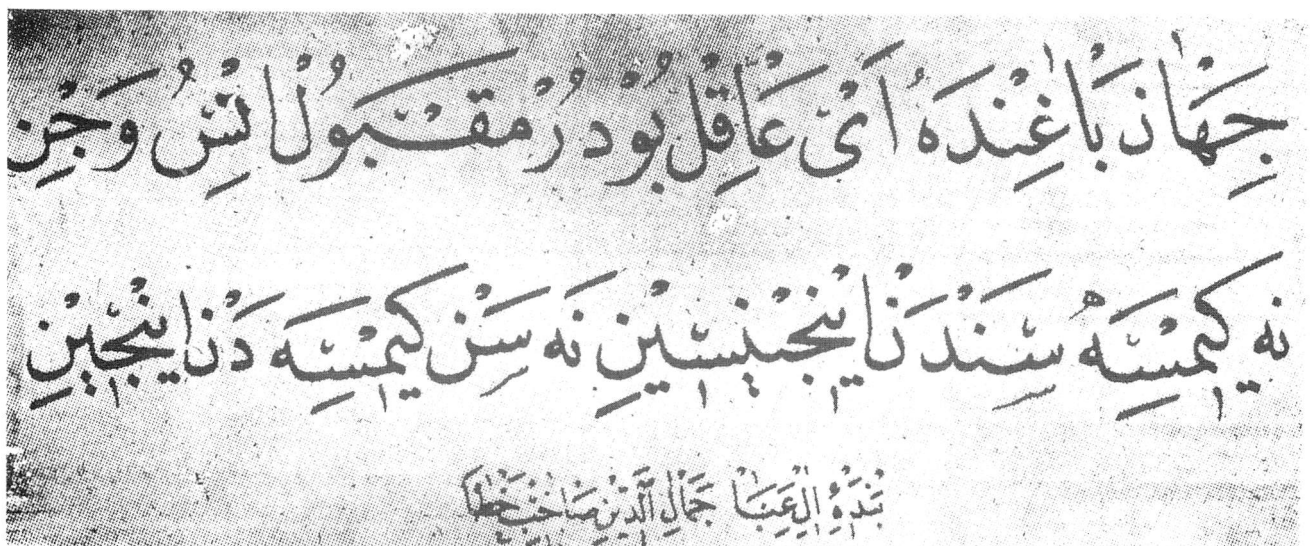 جِهَان بَاغِنْدَه اَىْ عَاقِلْ بُودُرْ مَقْبُولِ اِنْسُ وَجِنْ
نَه كِيمْسَه سَنْدَنْ اِينْجِينْسِينْ نَه سَنْ كِيمْسَه دَنْ اِينْجِينْ
بَنْدَهٔ اٰلِ عَبَا جَمَالُ الدِّينِ صَاحِب خَطَا